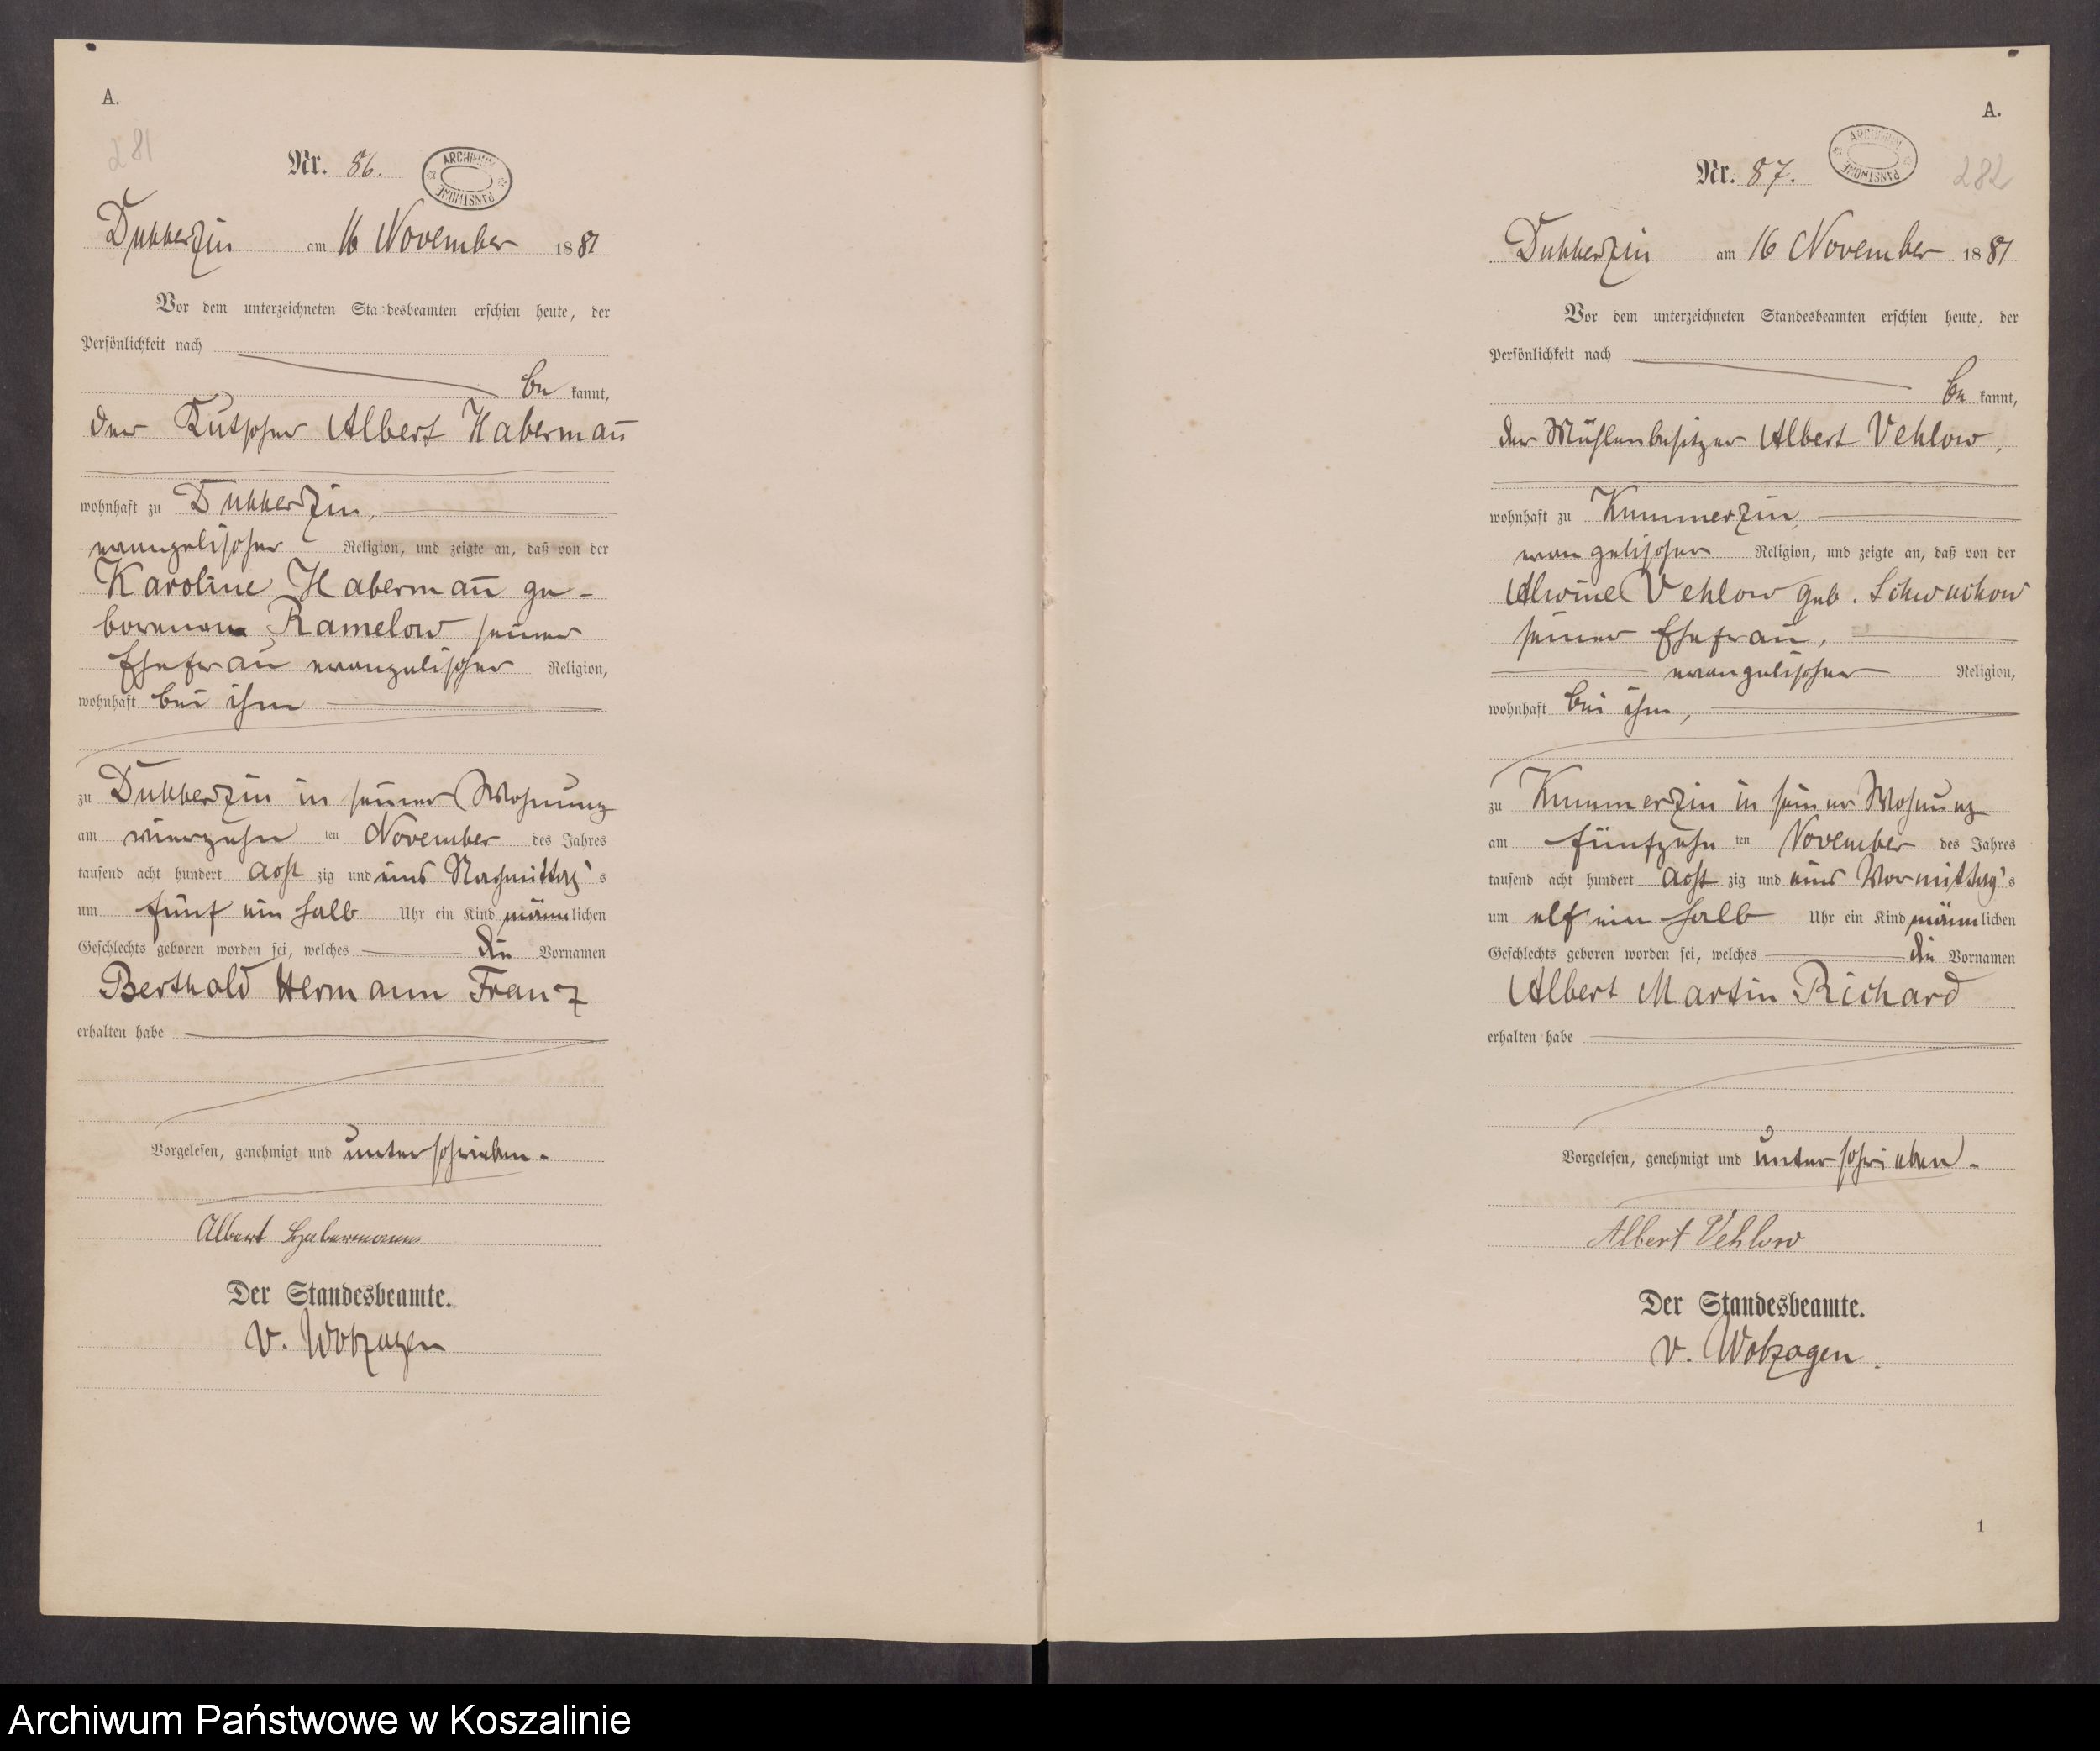 A.
281
Nr. 86.
ARCHIWUM PAŃSTWOWE
Dubberzin am 16 November 1881
Vor dem unterzeichneten Sta:desbeamten erschien heute, der
Persönlichkeit nach
be kannt,
der Kutscher Albert Habermañ
wohnhaft zu Dubberzin,
evangelischer Religion, und zeigte an, daß von der
Karoline Habermañ ge-
borenen Ramelow seiner
Ehefrau evangelischer Religion,
wohnhaft bei ihm
zu Dubberzin in seiner Wohnung
am vierzehn ten November des Jahres
tausend acht hundert acht zig und eins Nachmittag's
um fünf ein halb Uhr ein Kind männlichen
Geschlechts geboren worden sei, welches die Vornamen
Berthold Hermann Franz
erhalten habe
Vorgelesen, genehmigt und unterschrieben.
Albert Habermann
Der Standesbeamte.
v. Wobzagen
A.
Nr. 87.
ARCHIWUM PAŃSTWOWE
282
Dubberzin am 16 November 1881
Vor dem unterzeichneten Standesbeamten erschien heute, der
Persönlichkeit nach
be kannt,
der Mühlenbesitzer Albert Vehlow,
wohnhaft zu Kummerzin,
evangelischer Religion, und zeigte an, daß von der
Alwine Vehlow geb. Schwuchow
seiner Ehefrau,
evangelischer Religion,
wohnhaft bei ihm,
zu Kummerzin in seiner Wohnung
am fünfzehn ten November des Jahres
tausend acht hundert acht zig und eins Vormittag's
um elf ein halb Uhr ein Kind männlichen
Geschlechts geboren worden sei, welches die Vornamen
Albert Martin Richard
erhalten habe
Vorgelesen, genehmigt und unterschrieben.
Albert Vehlow
Der Standesbeamte.
v. Wobzagen.
1
Archiwum Państwowe w Koszalinie